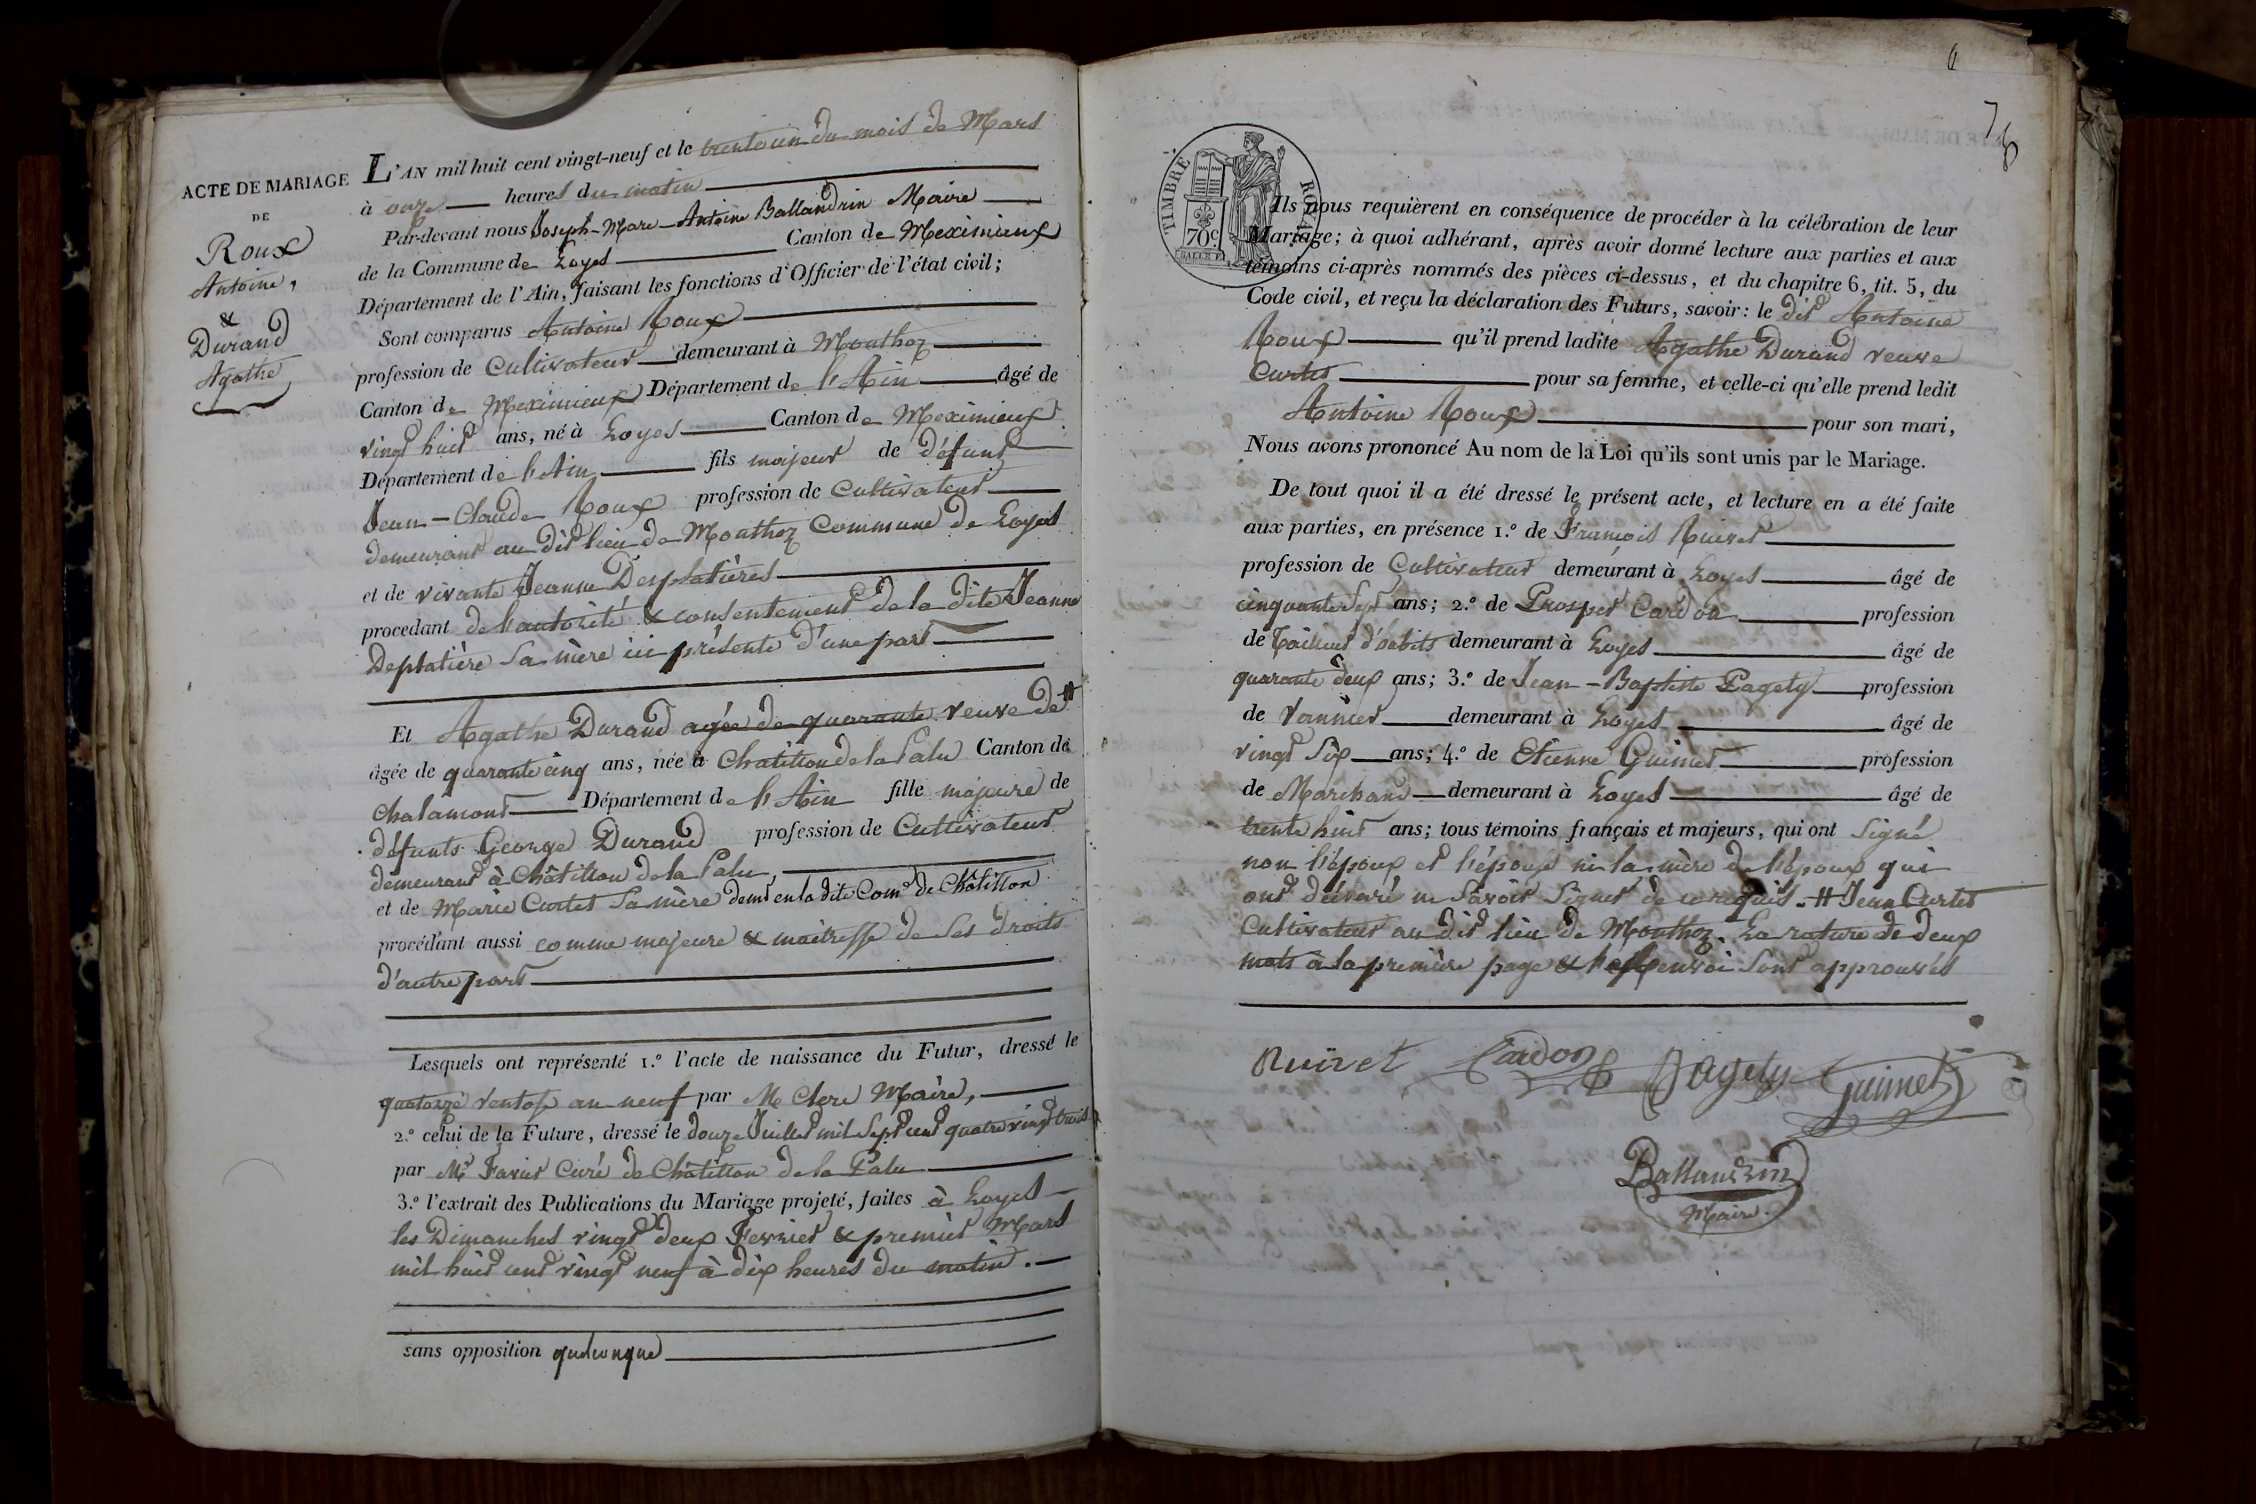 ACTE DE MARIAGE
DE
Roux
Antoine,
&
Durand
Agathe
L'AN mil huit cent vingt-neuf et le trente un du mois de Mars
à onze heures du matin
Par-devant nous Joseph-Marie-Antoine Ballandrin Maire
de la Commune de Loyes Canton de Meximieux
Département de l'Ain, faisant les fonctions d'Officier de l'état civil;
Sont comparus Antoine Roux
profession de Cultivateur demeurant à Monthoz
Canton de Meximieux Département de l'Ain âgé de
vingt huit ans, né à Loyes Canton de Meximieux
Département de l'Ain fils majeur de défunt
Jean-Claude Roux profession de Cultivateur
demeurant au dit lieu de Monthoz Commune de Loyes
et de vivante Jeanne Desplatières
procedant de l'autorité & consentement de la dite Jeanne
Deplatière sa mère ici présente d'une part
Et Agathe Durand agée de quarante veuve de #
âgée de quarante cinq ans, née à Chatillon de la Palu Canton de
Chalamont Département de l'Ain fille majeure de
défunts George Durand profession de Cultivateur
demeurant à Châtillon de la Palu,
et de Marie Curtet sa mère demt en la dite Come de Châtillon
procédant aussi comme majeure & maitresse de ses droits
d'autre part
Lesquels ont représenté 1.º l'acte de naissance du Futur, dressé le
quatorze ventose an neuf par Mr Clerc Maire,
2.º celui de la Future, dressé le douze Juillet mil sept cent quatre vingt trois
par Mr Favier Curé de Châtillon de la Palu
3.º l'extrait des Publications du Mariage projeté, faites à Loyes
les Dimanches vingt deux Fevrier & premier Mars
mil huit cent vingt neuf à dix heures du matin.
sans opposition quelconque
6
7
TIMBRE ROYAL
70c
Ils nous requièrent en conséquence de procéder à la célébration de leur
Mariage; à quoi adhérant, après avoir donné lecture aux parties et aux
témoins ci-après nommés des pièces ci-dessus, et du chapitre 6, tit. 5, du
Code civil, et reçu la déclaration des Futurs, savoir: le dit Antoine
Roux qu'il prend ladite Agathe Durand veuve
Curtet pour sa femme, et celle-ci qu'elle prend ledit
Antoine Roux pour son mari,
Nous avons prononcé Au nom de la Loi qu'ils sont unis par le Mariage.
De tout quoi il a été dressé le présent acte, et lecture en a été faite
aux parties, en présence 1.º de François Ruivet
profession de Cultivateur demeurant à Loyes âgé de
cinquante sept ans; 2.º de Prosper Cardon profession
de Tailleur d'habits demeurant à Loyes âgé de
quarante deux ans; 3.º de Jean-Baptiste Pagety profession
de Vannier demeurant à Loyes âgé de
vingt six ans; 4.º de Etienne Guimet profession
de Marchand demeurant à Loyes âgé de
trente huit ans; tous témoins français et majeurs, qui ont signé
non l'époux et l'épouse ni la mère de l'époux qui
ont déclaré ne savoir signer de ce requis. # Jean Curtet
Cultivateur au dit lieu de Monthoz. La rature de deux
mots à la première page & le renvoi sont approuvés
Ruivet Cardon Pagety Guimet
Ballandrin
Maire.